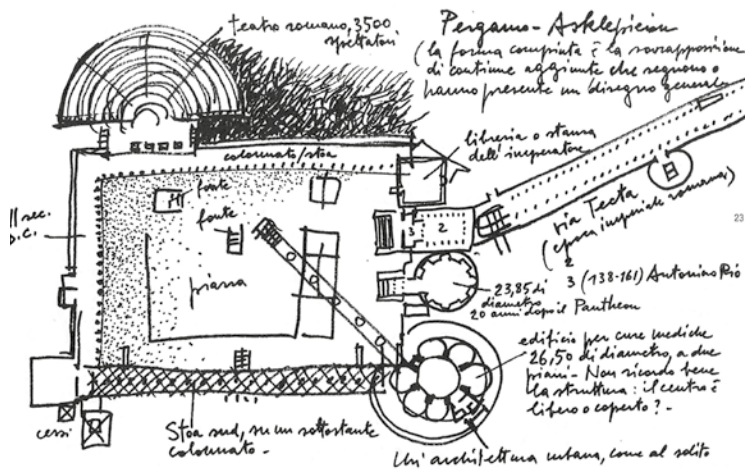 teatro romano, 3500
spettatori
Pergamo - Asklepieion
(la forma compiuta è la sovrapposizione
di continue aggiunte che seguono o
hanno presente un disegno generale
libreria o stanza
dell'imperatore
colonnato/stoa
fonte
fonte
II sec.
D.C.
piazza
3
2
via Tecta
(epoca imperiale romana)
23
2
3 (138-161) Antonino Pio
23,85 di
diametro
20 anni dopo il Pantheon
edificio per cure mediche
26,50 di diametro, a due
piani - Non ricordo bene
la struttura: il centro è
libero o coperto? -
cessi
Stoa sud, su un sottostante
colonnato -
Un'architettura urbana, come al solito